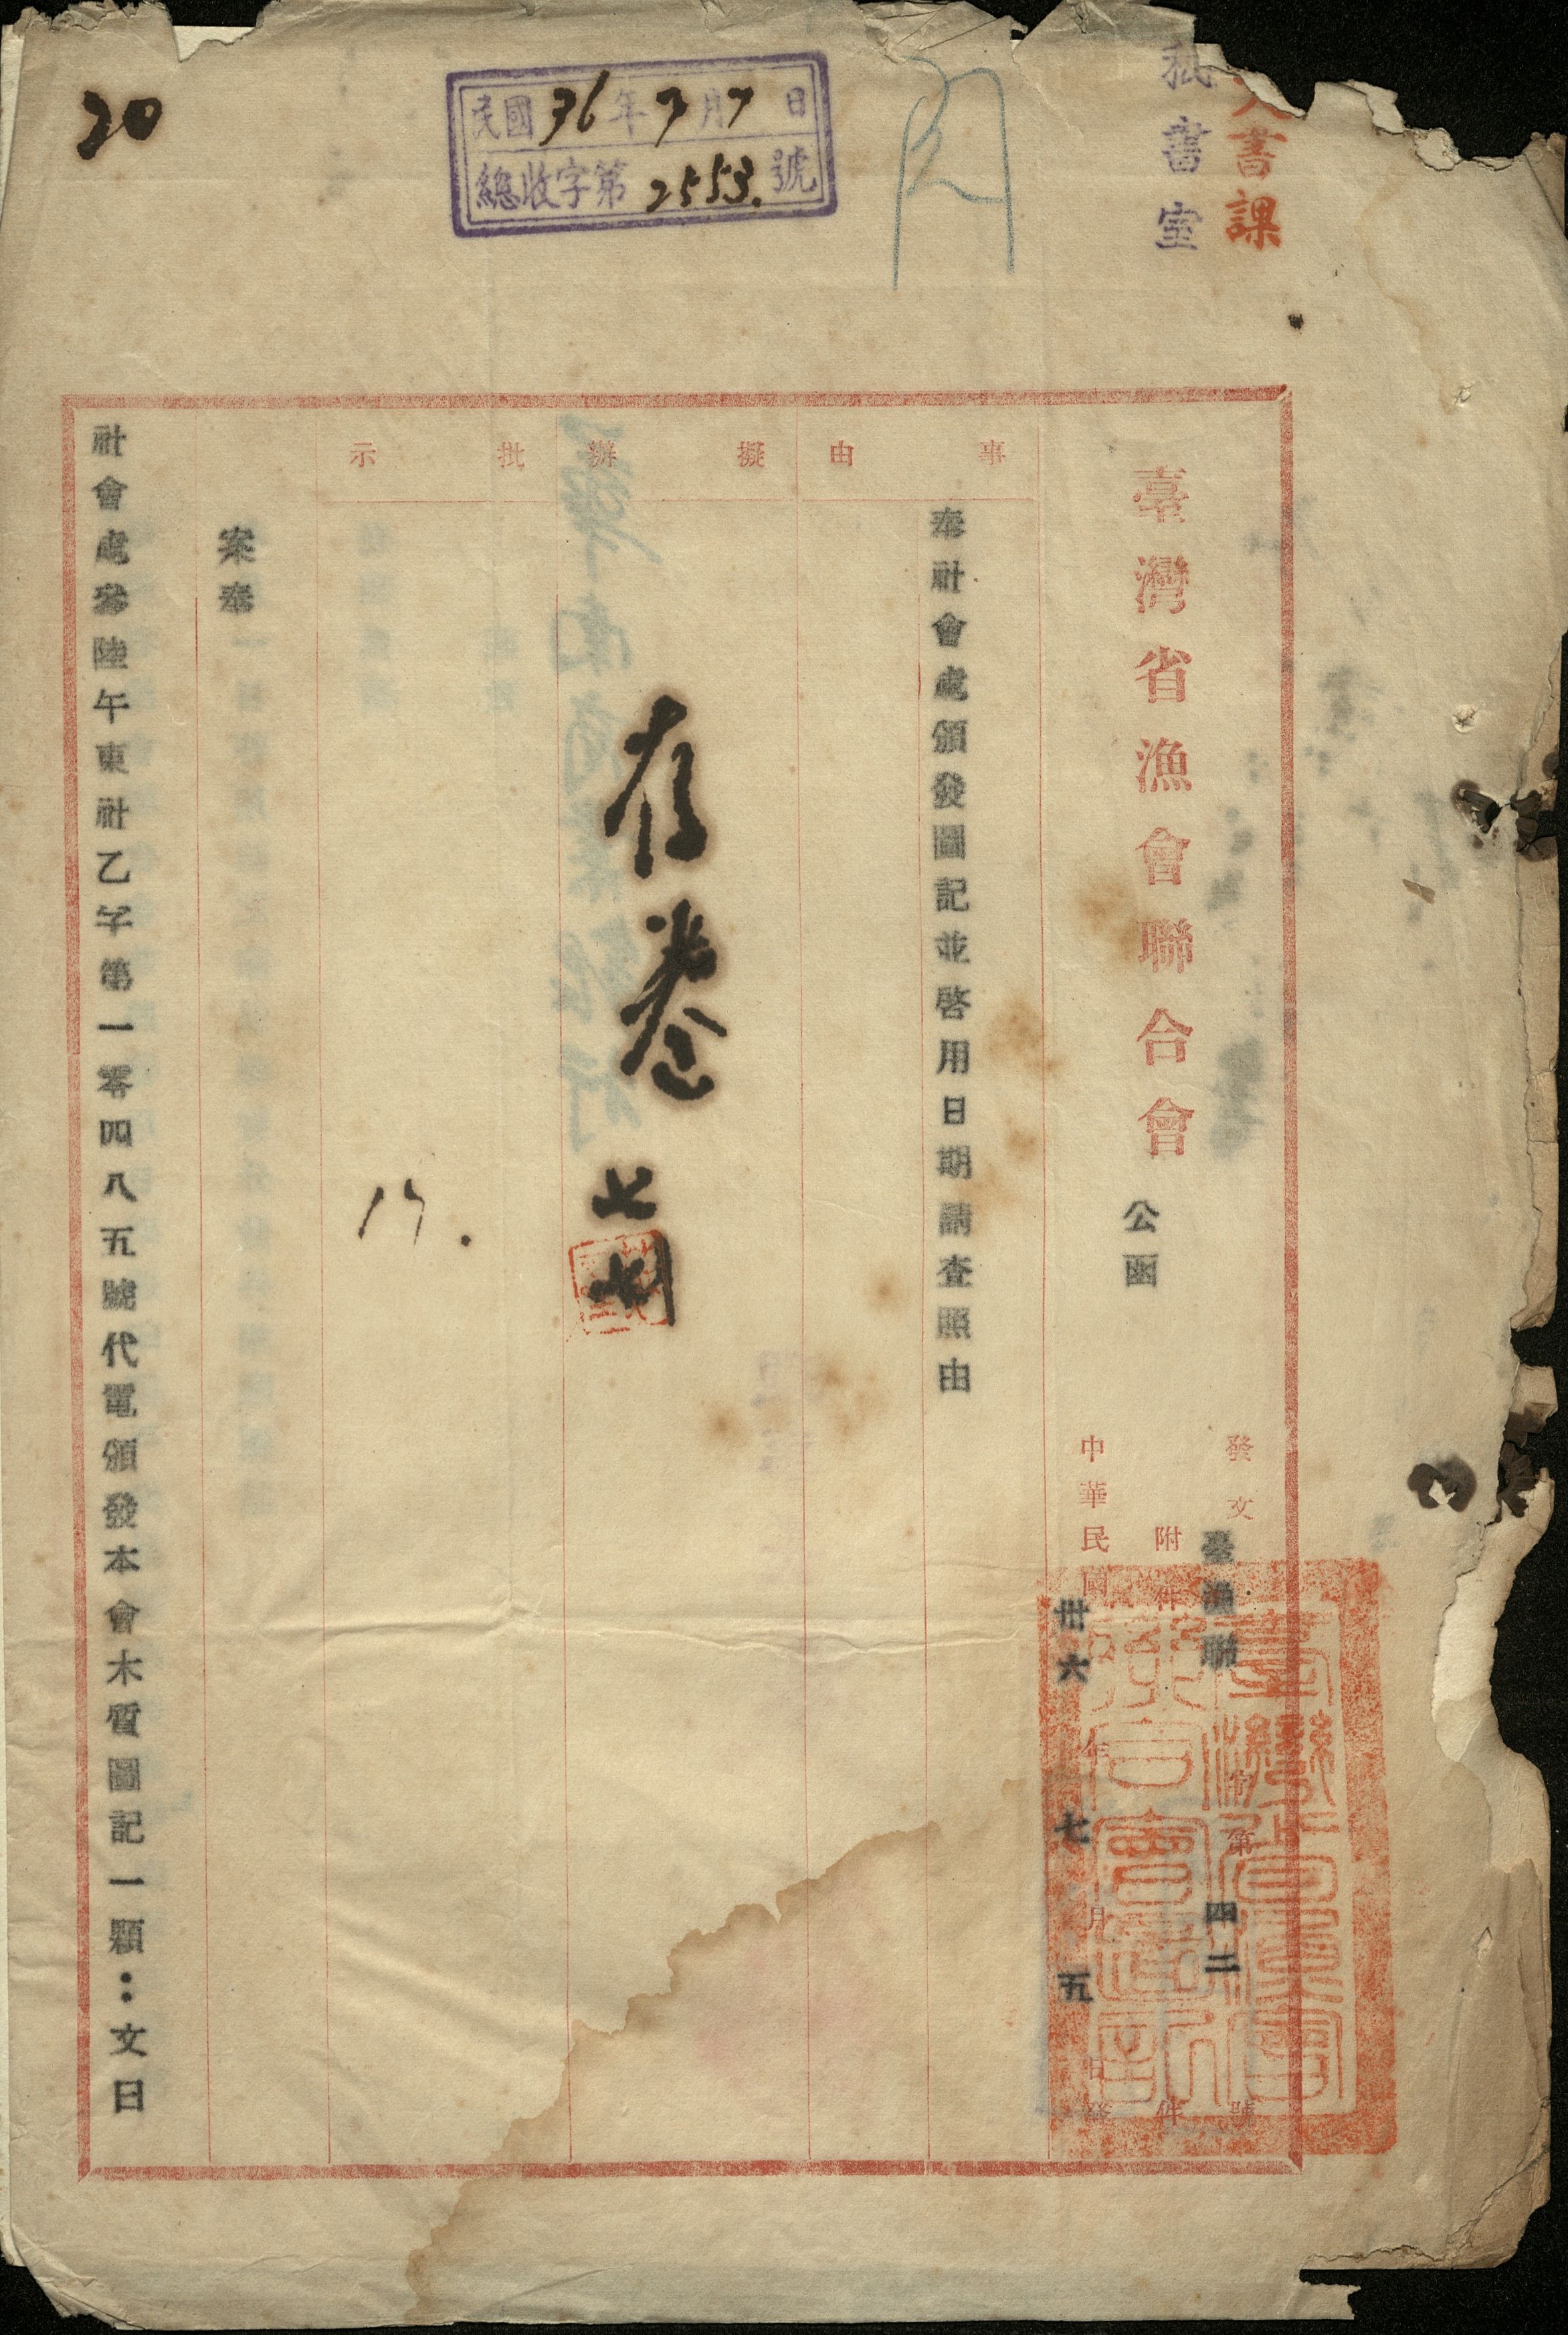 20
民國36年7月7日
總收字第2553.號
秘書室
書課
臺灣省漁會聯合會 公函
發文臺漁聯字第四二號
附件 件
中華民國卅六年七月五日發
事由
奉社會處頒發圖記並啓用日期請查照由
擬辦
存卷
七
批示
17.
案奉
社會處參陸午東社乙字第一零四八五號代電頒發本會木質圖記一顆:文曰